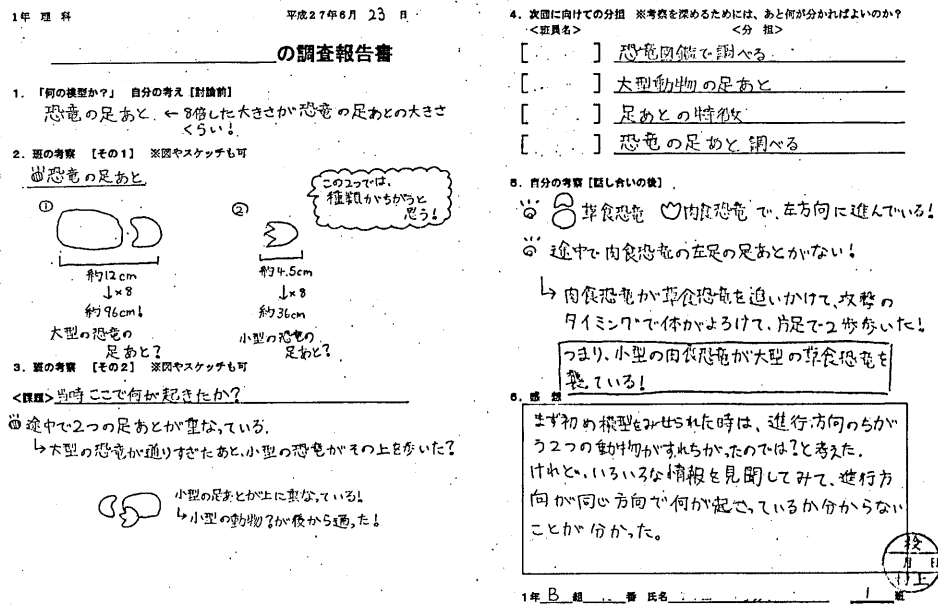 1年 理科
平成27年6月 23 日
の調査報告書
1. 「何の模型か?」 自分の考え [討論前]
恐竜の足あと ← 8倍した大きさが恐竜の足あとの大きさ
くらい!
2. 班の考察 [その1] ※図やスケッチも可
恐竜の足あと
この2つでは、
種類がちがうと
思う!
①
②
約12cm
↓×8
約96cm!
大型の恐竜の
足あと?
約4.5cm
↓×8
約36cm
小型の恐竜の
足あと?
3. 班の考察 [その2] ※図やスケッチも可
<課題> 当時ここで何が起きたか?
途中で2つの足あとが重なっている。
↳大型の恐竜が通りすぎたあと、小型の恐竜がその上を歩いた?
小型の足あとが上に重なっている!
↳小型の動物?が後から通った!
4. 次回に向けての分担 ※考察を深めるためには、あと何が分かればよいのか?
<班員名> <分 担>
[ ] 恐竜図鑑で調べる
[ ] 大型動物の足あと
[ ] 足あとの特徴
[ ] 恐竜の足あと調べる
5. 自分の考察 [話し合いの後]
草食恐竜 肉食恐竜 で、左方向に進んでいる!
途中で肉食恐竜の左足の足あとがない!
↳ 肉食恐竜が草食恐竜を追いかけて、攻撃の
タイミングで体がよろけて、片足で2歩歩いた!
つまり、小型の肉食恐竜が大型の草食恐竜を
襲ている!
6. 感 想
まず初め模型をみせられた時は、進行方向のちが
う2つの動物がすれちがったのでは?と考えた。
けれど、いろいろな情報を見聞してみて、進行方
向が同じ方向で何が起こっているか分からない
ことが分かった。
月 日
村上
1年 B 組 番 氏名 1 班